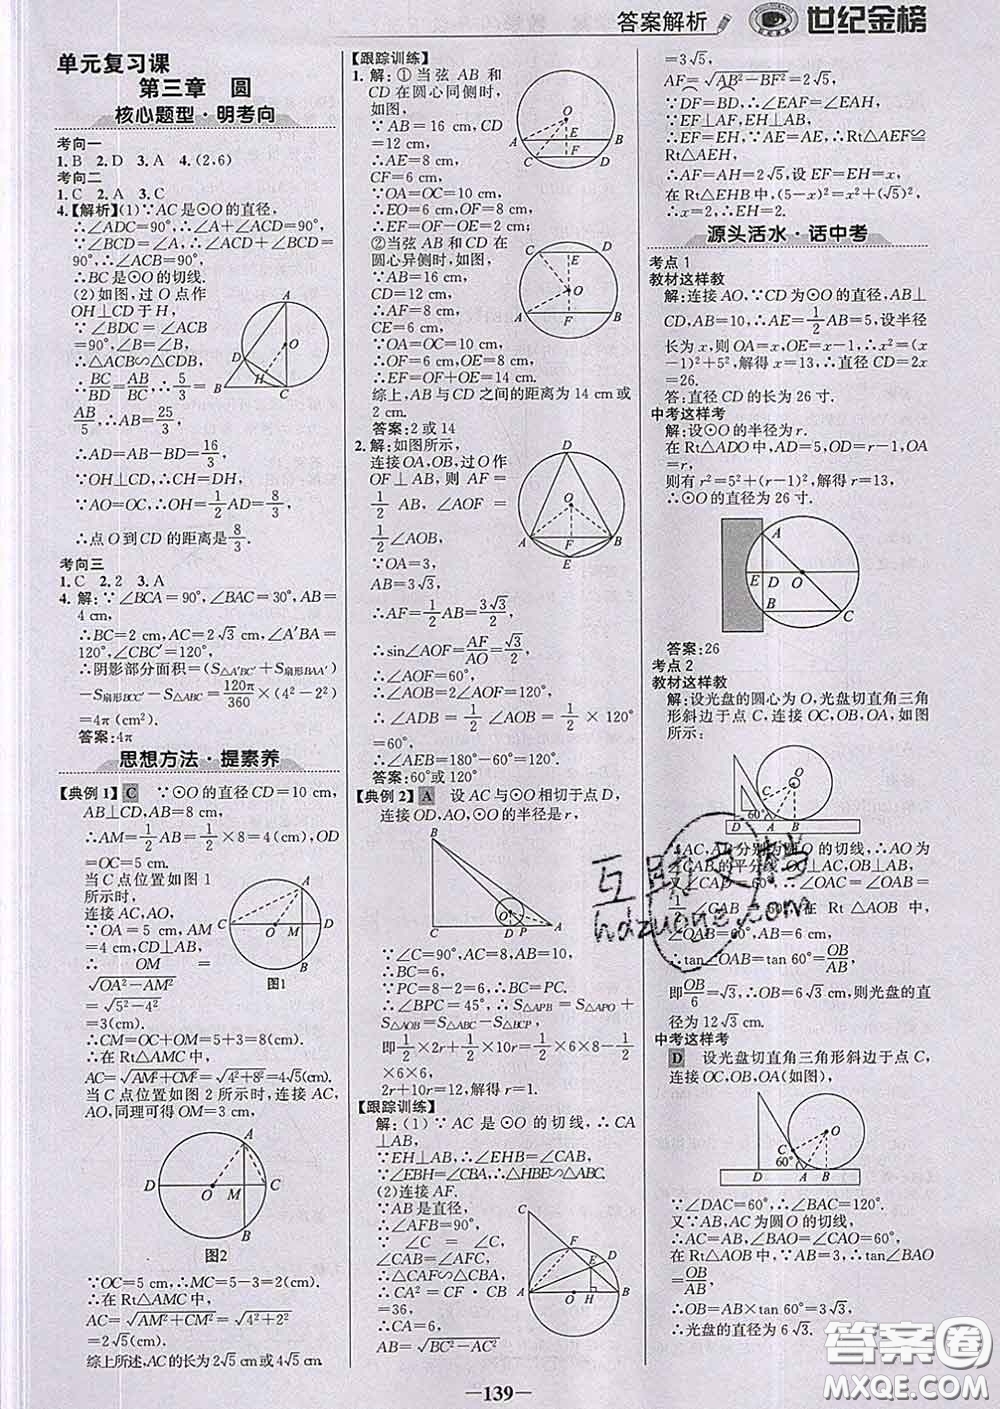 答案解析
世纪金榜
单元复习课
第三章 圆
核心题型·明考向
考向一
1.B 2.D 3.A 4.(2,6)
考向二
1.C 2.A 3.C
4.【解析】(1)∵AC是⊙O的直径,
∴∠ADC=90°,∴∠A+∠ACD=90°.
∵∠BCD=∠A,∴∠ACD+∠BCD=90°,
∴BC是⊙O的切线.
(2)如图,过O点作
OH⊥CD于H,
∵∠BDC=∠ACB
=90°,∠B=∠B,
∴△ACB∽△CDB,
∴BC/BD=AB/BC,∴5/3=
AB/5,∴AB=25/3,
∴AD=AB-BD=16/3,
∵OH⊥CD,∴CH=DH,
∵AO=CO,∴OH=1/2AD=8/3,
∴点O到CD的距离是8/3.
考向三
1.C 2.2 3.A
4. 解:∵∠BCA=90°,∠BAC=30°,AB=
4 cm,
∴BC=2 cm,AC=2√3 cm,∠A′BA=
120°,∠CBC′=120°,
∴阴影部分面积=(S△A′BC′+S扇形BAA′)
-S扇形BCC′-S△ABC=120π/360×(4²-2²)
=4π(cm²).
答案:4π
思想方法·提素养
【典例1】C ∵⊙O的直径CD=10 cm,
AB⊥CD,AB=8 cm,
∴AM=1/2AB=1/2×8=4(cm),OD
=OC=5 cm.
当C点位置如图1
所示时,
连接AC,AO,
∵OA=5 cm,AM
=4 cm,CD⊥AB,
∴OM=
√OA²-AM²
=√5²-4²
=3(cm)
∴CM=OC+OM=5+3=8(cm).
∴在Rt△AMC中,
AC=√AM²+CM²=√4²+8²=4√5(cm)
当C点位置如图2所示时,连接AC,
AO,同理可得OM=3 cm,
图1
图2
∵OC=5 cm,∴MC=5-3=2(cm).
∴在Rt△AMC中,
AC=√AM²+CM²=√4²+2²
=2√5(cm)
综上所述,AC的长为2√5 cm或4√5 cm.
【跟踪训练】
1. 解:①当弦AB和
CD在圆心同侧时,
如图,
∵AB=16 cm,CD
=12 cm,
∴AE=8 cm,
CF=6 cm,
∵OA=OC=10 cm,
∴EO=6 cm,OF=8 cm,
∴EF=OF-OE=2 cm;
②当弦AB和CD在
圆心异侧时,如图,
∵AB=16 cm,
CD=12 cm,
∴AF=8 cm,
CE=6 cm,
∵OA=OC=10 cm,
∴OF=6 cm,OE=8 cm,
∴EF=OF+OE=14 cm.
综上,AB与CD之间的距离为14 cm或
2 cm.
答案:2或14
2. 解:如图所示,
连接OA,OB,过O作
OF⊥AB,则AF=
1/2AB,∠AOF=
1/2∠AOB,
∵OA=3,
AB=3√3,
∴AF=1/2AB=3√3/2,
∴sin∠AOF=AF/AO=√3/2,
∴∠AOF=60°,
∴∠AOB=2∠AOF=120°,
∴∠ADB=1/2∠AOB=1/2×120°
=60°,
∴∠AEB=180°-60°=120°.
答案:60°或120°
【典例2】A 设AC与⊙O相切于点D,
连接OD,AO,⊙O的半径是r,
∵∠C=90°,AC=8,AB=10,
∴BC=6,
∵PC=8-2=6,∴BC=PC.
∴∠BPC=45°,∴S△APB=S△APO+
S△AOB=S△ABC-S△BCP,
即1/2×2r+1/2×10r=1/2×6×8-1/2
×6×6,
2r+10r=12,解得r=1.
【跟踪训练】
解:(1)∵AC是⊙O的切线,∴CA
⊥AB,
∵EH⊥AB,∴∠EHB=∠CAB,
∵∠EBH=∠CBA,∴△HBE∽△ABC.
(2)连接AF.
∵AB是直径,
∴∠AFB=90°,
∵∠C=∠C,
∠CAB=∠AFC,
∴△CAF∽△CBA,
∴CA²=CF·CB
=36,
∴CA=6,
AB=√BC²-AC²
=3√5,
AF=√AB²-BF²=2√5,
∵DF=BD,∴∠EAF=∠EAH,
∵EF⊥AF,EH⊥AB,
∴EF=EH,∵AE=AE,∴Rt△AEF≌
Rt△AEH,
∴AF=AH=2√5,设EF=EH=x,
在Rt△EHB中,(5-x)²=x²+(√5)²,
∴x=2,∴EH=2.
源头活水·话中考
考点1
教材这样教
解:连接AO,∵CD为⊙O的直径,AB⊥
CD,AB=10,∴AE=1/2AB=5,设半径
长为x,则OA=x,OE=x-1,∴x²=(x-
1)²+5²,解得x=13,∴直径CD=2x
=26.
答:直径CD的长为26寸.
中考这样考
解:设⊙O的半径为r.
在Rt△ADO中,AD=5,OD=r-1,OA
=r,
则有r²=5²+(r-1)²,解得r=13,
∴⊙O的直径为26寸.
答案:26
考点2
教材这样教
解:设光盘的圆心为O,光盘切直角三角
形斜边于点C,连接OC,OB,OA,如图
所示:
∵AC,AB分别为圆O的切线,∴AO为
∠CAB的平分线,OC⊥AC,OB⊥AB,
又∠CAD=60°,∴∠OAC=∠OAB=
1/2∠CAB=60°,在Rt△AOB中,
∠OAB=60°,AB=6 cm,
∴tan∠OAB=tan60°=OB/AB,
即OB/6=√3,∴OB=6√3 cm,则光盘的直
径为12√3 cm.
中考这样考
D 设光盘切直角三角形斜边于点C,
连接OC,OB,OA(如图),
∵∠DAC=60°,∴∠BAC=120°.
又∵AB,AC为圆O的切线,
∴AC=AB,∠BAO=∠CAO=60°,
在Rt△AOB中,∵AB=3,∴tan∠BAO
=OB/AB,
∴OB=AB×tan 60°=3√3,
∴光盘的直径为6√3.
—139—
互助文档
hdzuone.com
答案圈
MXQE.COM